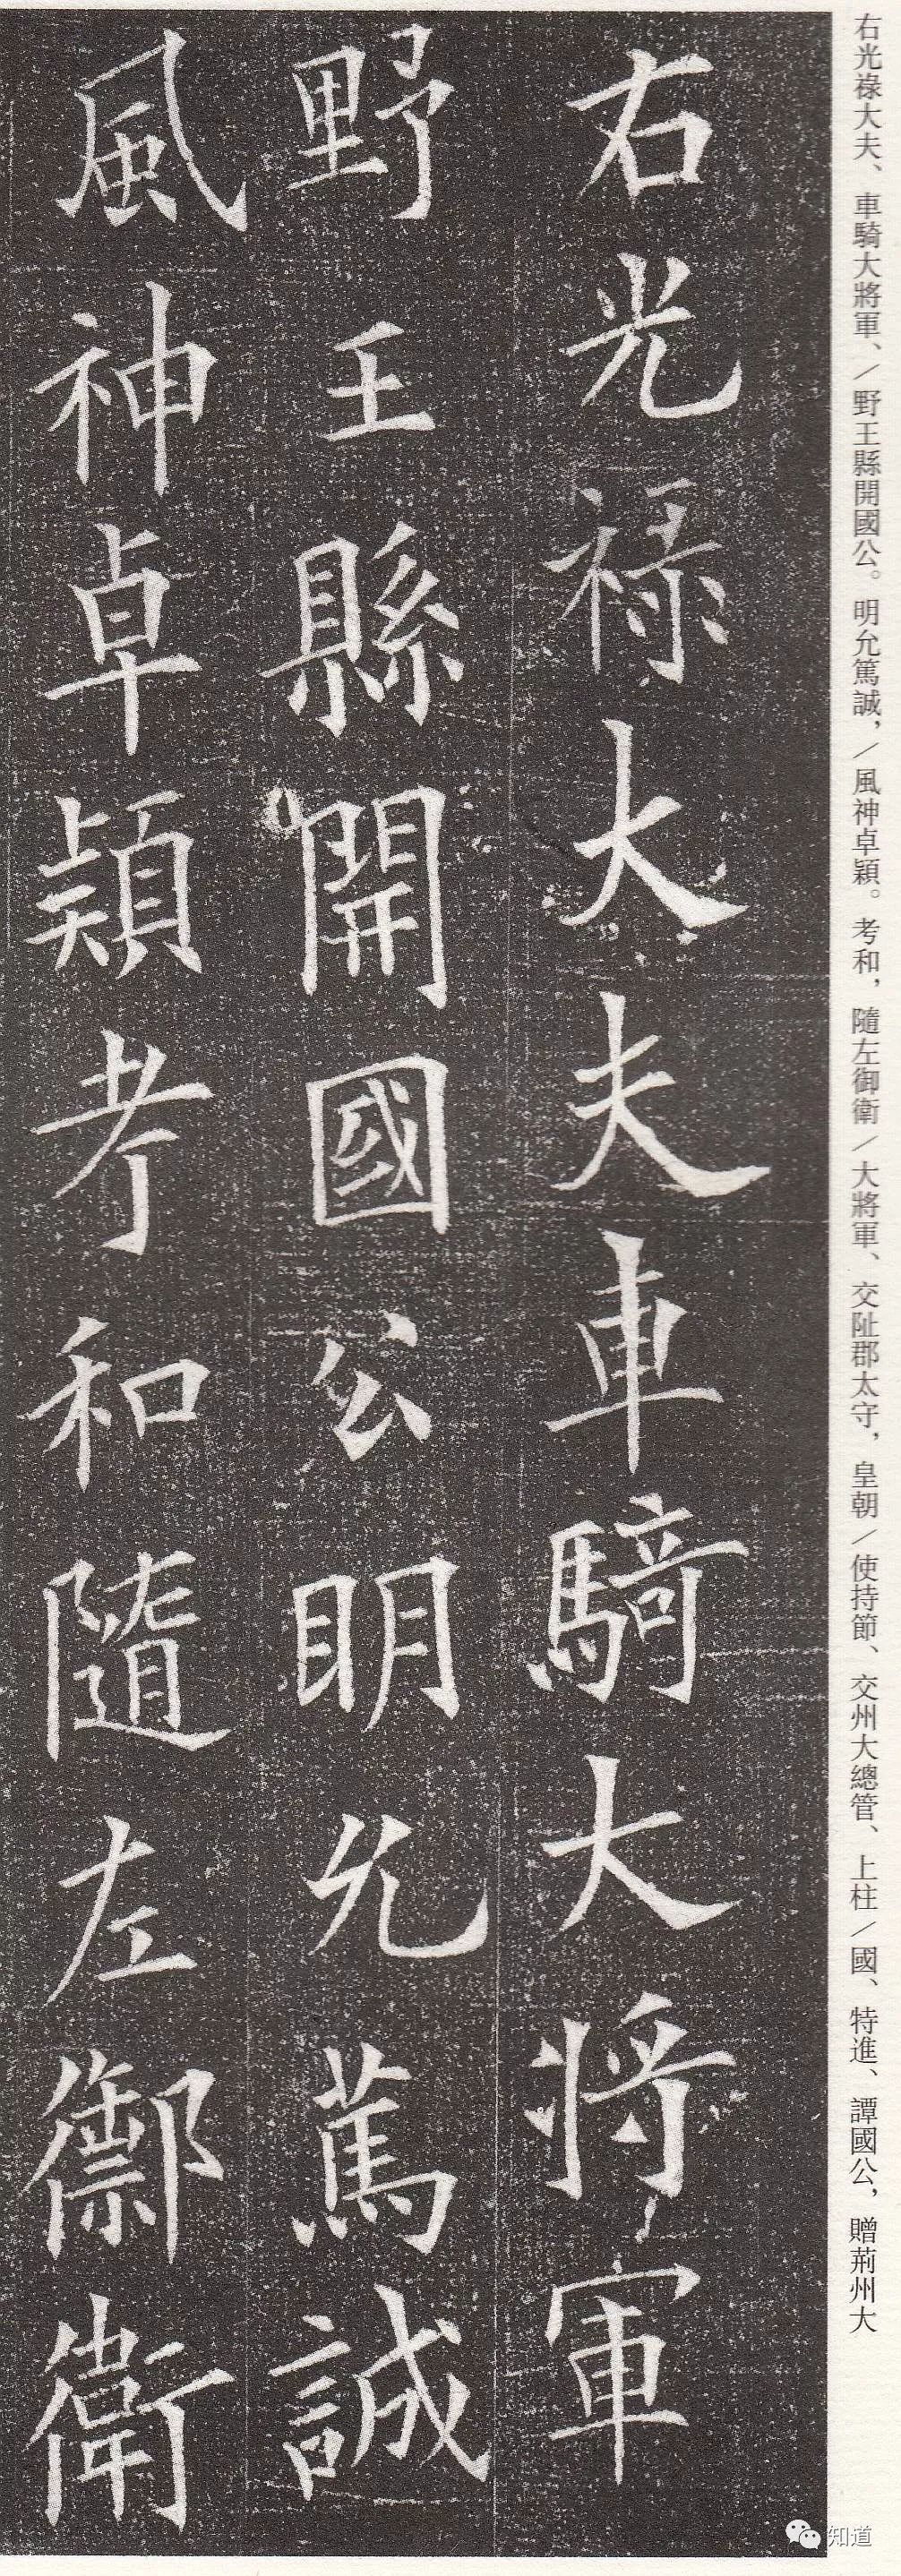 右光祿大夫、車騎大將軍、/野王縣開國公。明允篤誠，/風神卓穎。考和，隨左御衛/大將軍、交阯郡太守，皇朝/使持節、交州大總管、上柱/國、特進、譚國公，贈荊州大
右光祿大夫車騎大將軍
野王縣開國公明允篤誠
風神卓穎考和隨左御衛
知道